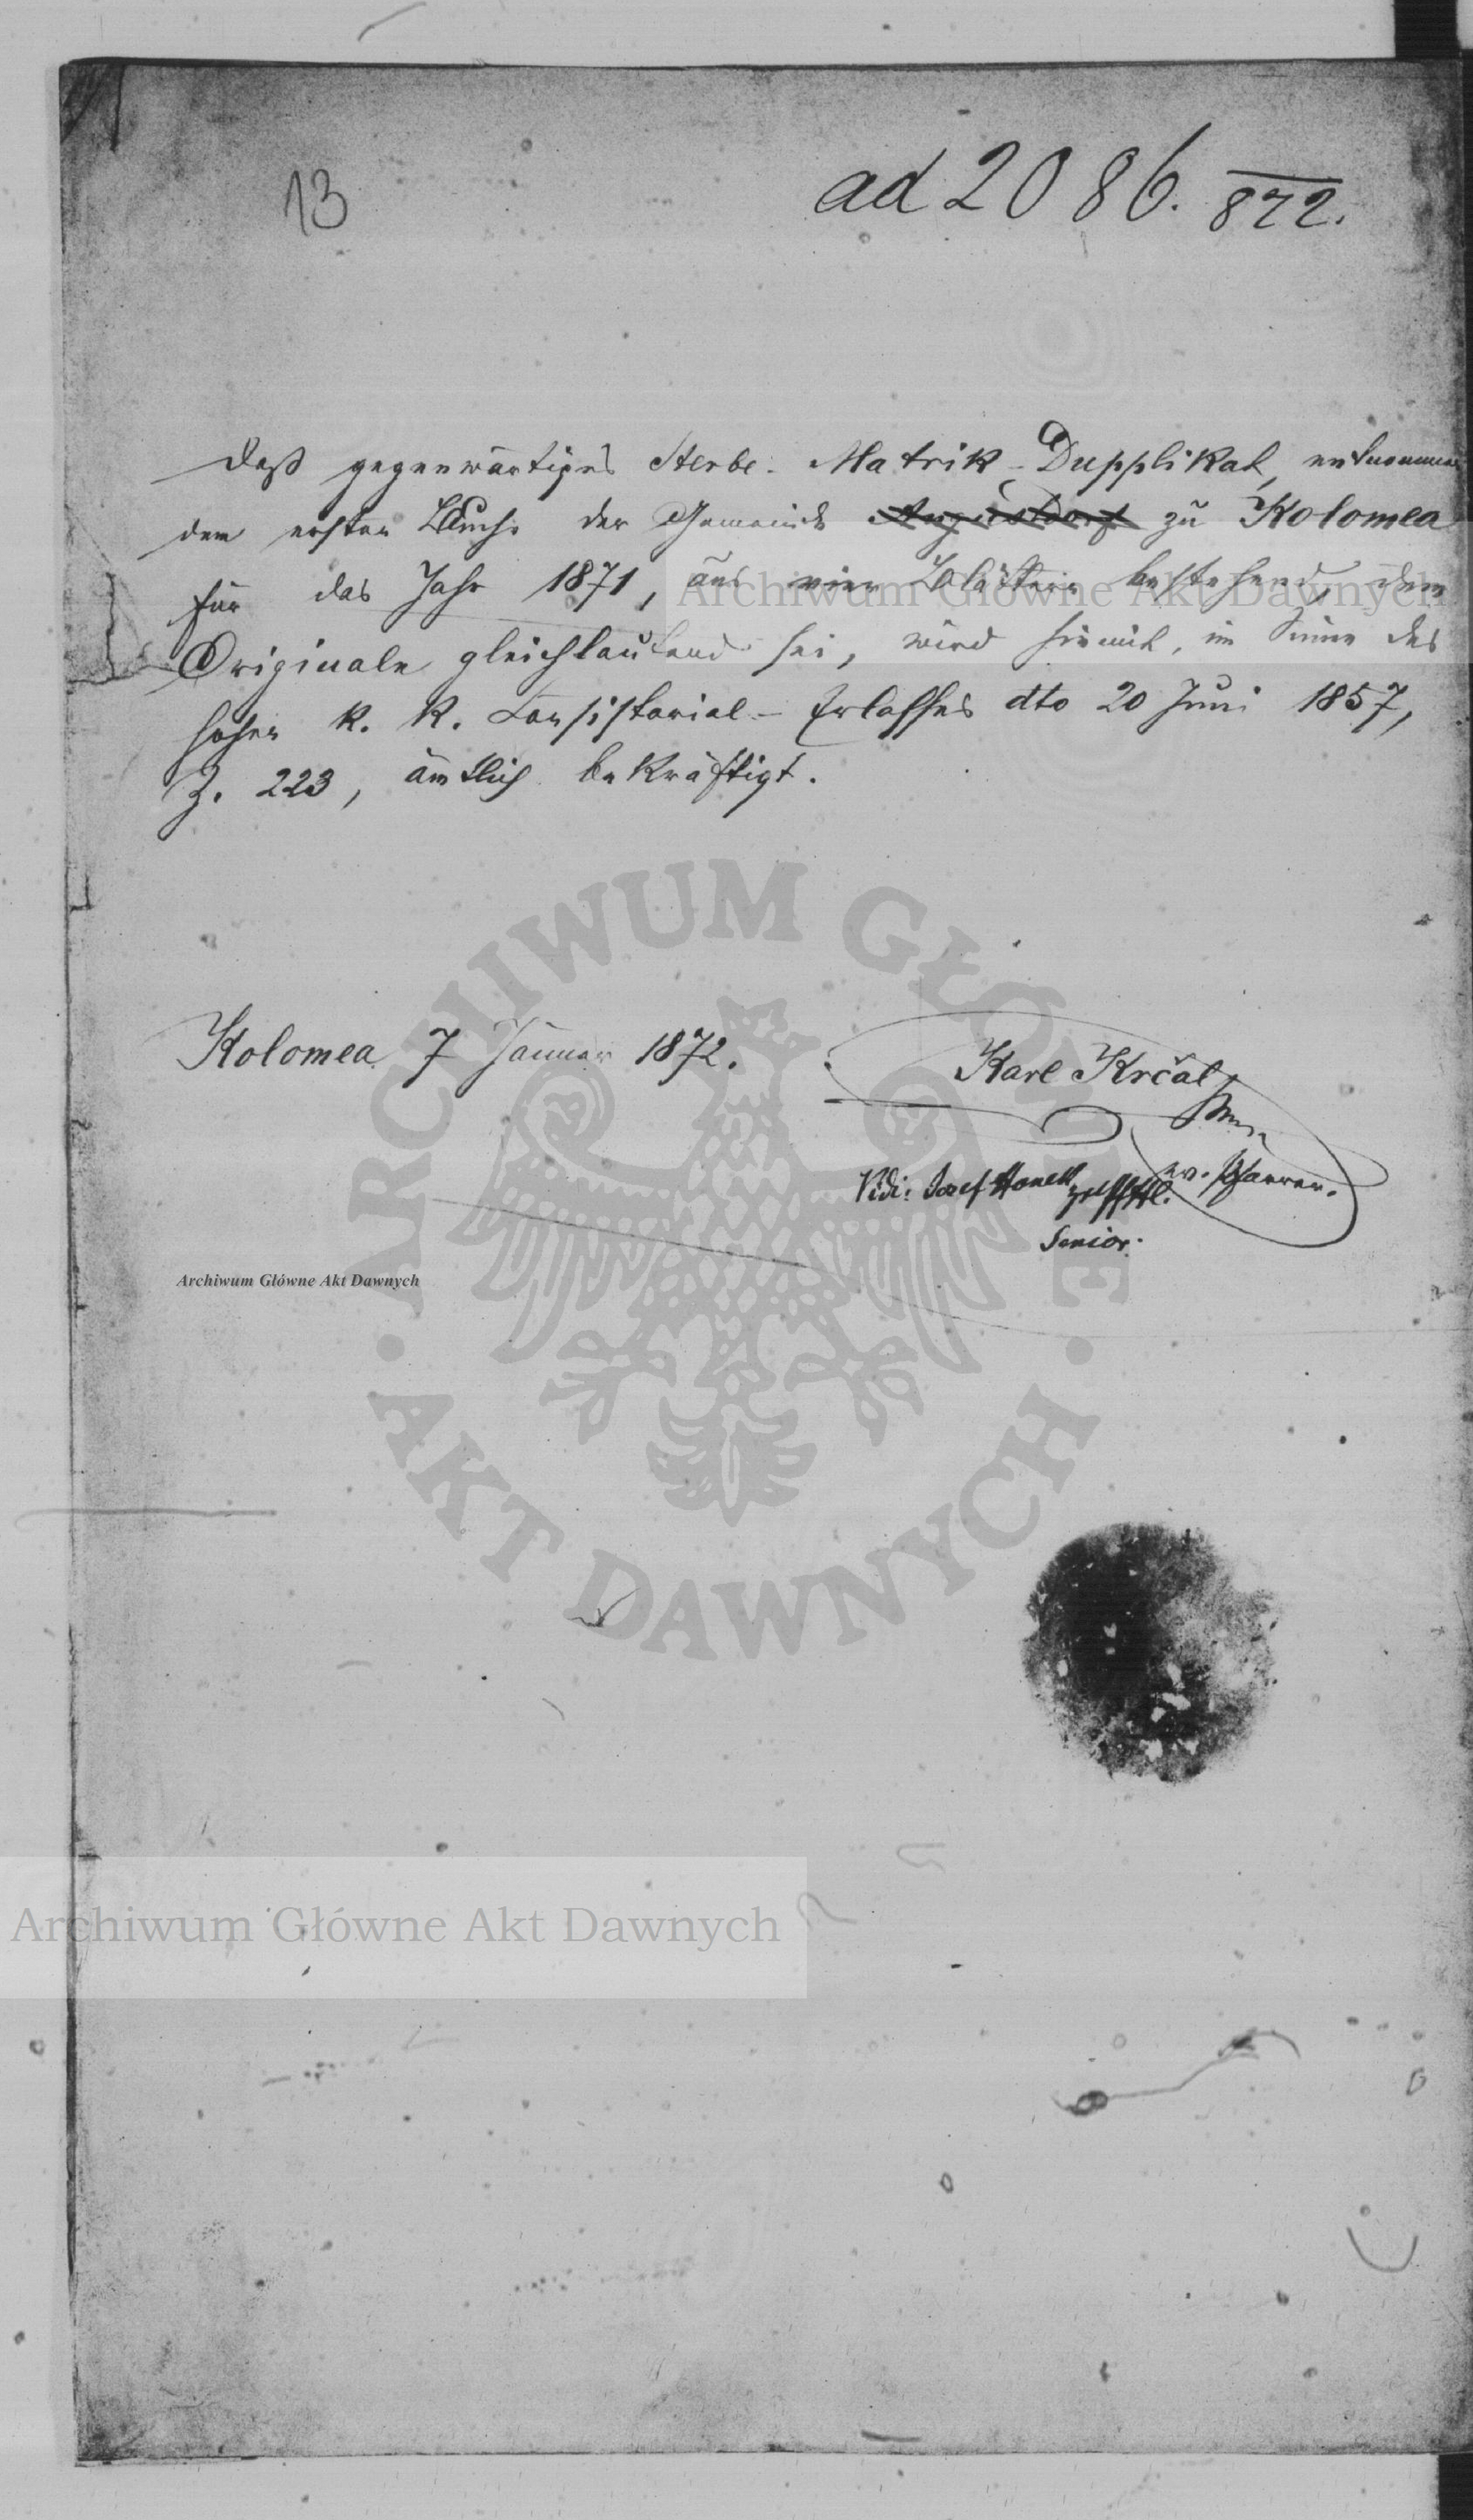 13
ad 2086. 872.
Daß gegenwärtiges Sterbe-Matrik-Dupplikat, entnommen
dem ersten Buche der Gemeinde Augustdorf zu Kolomea
für das Jahr 1871, aus vier Blättern bestehend, dem
Originale gleichlautend sei, wird hiemit, im Sinne des
hohen k. k. Consistorial-Erlasses dto 20 Juni 1857,
Z. 223, ämtlich bekräftigt.
Kolomea 7 Jänner 1872.
Karl Krčal
ev. Pfarrer.
Vidi: Josef
Senior.
ARCHIWUM GŁÓWNE
AKT DAWNYCH
Archiwum Główne Akt Dawnych
Archiwum Główne Akt Dawnych
Archiwum Główne Akt Dawnych